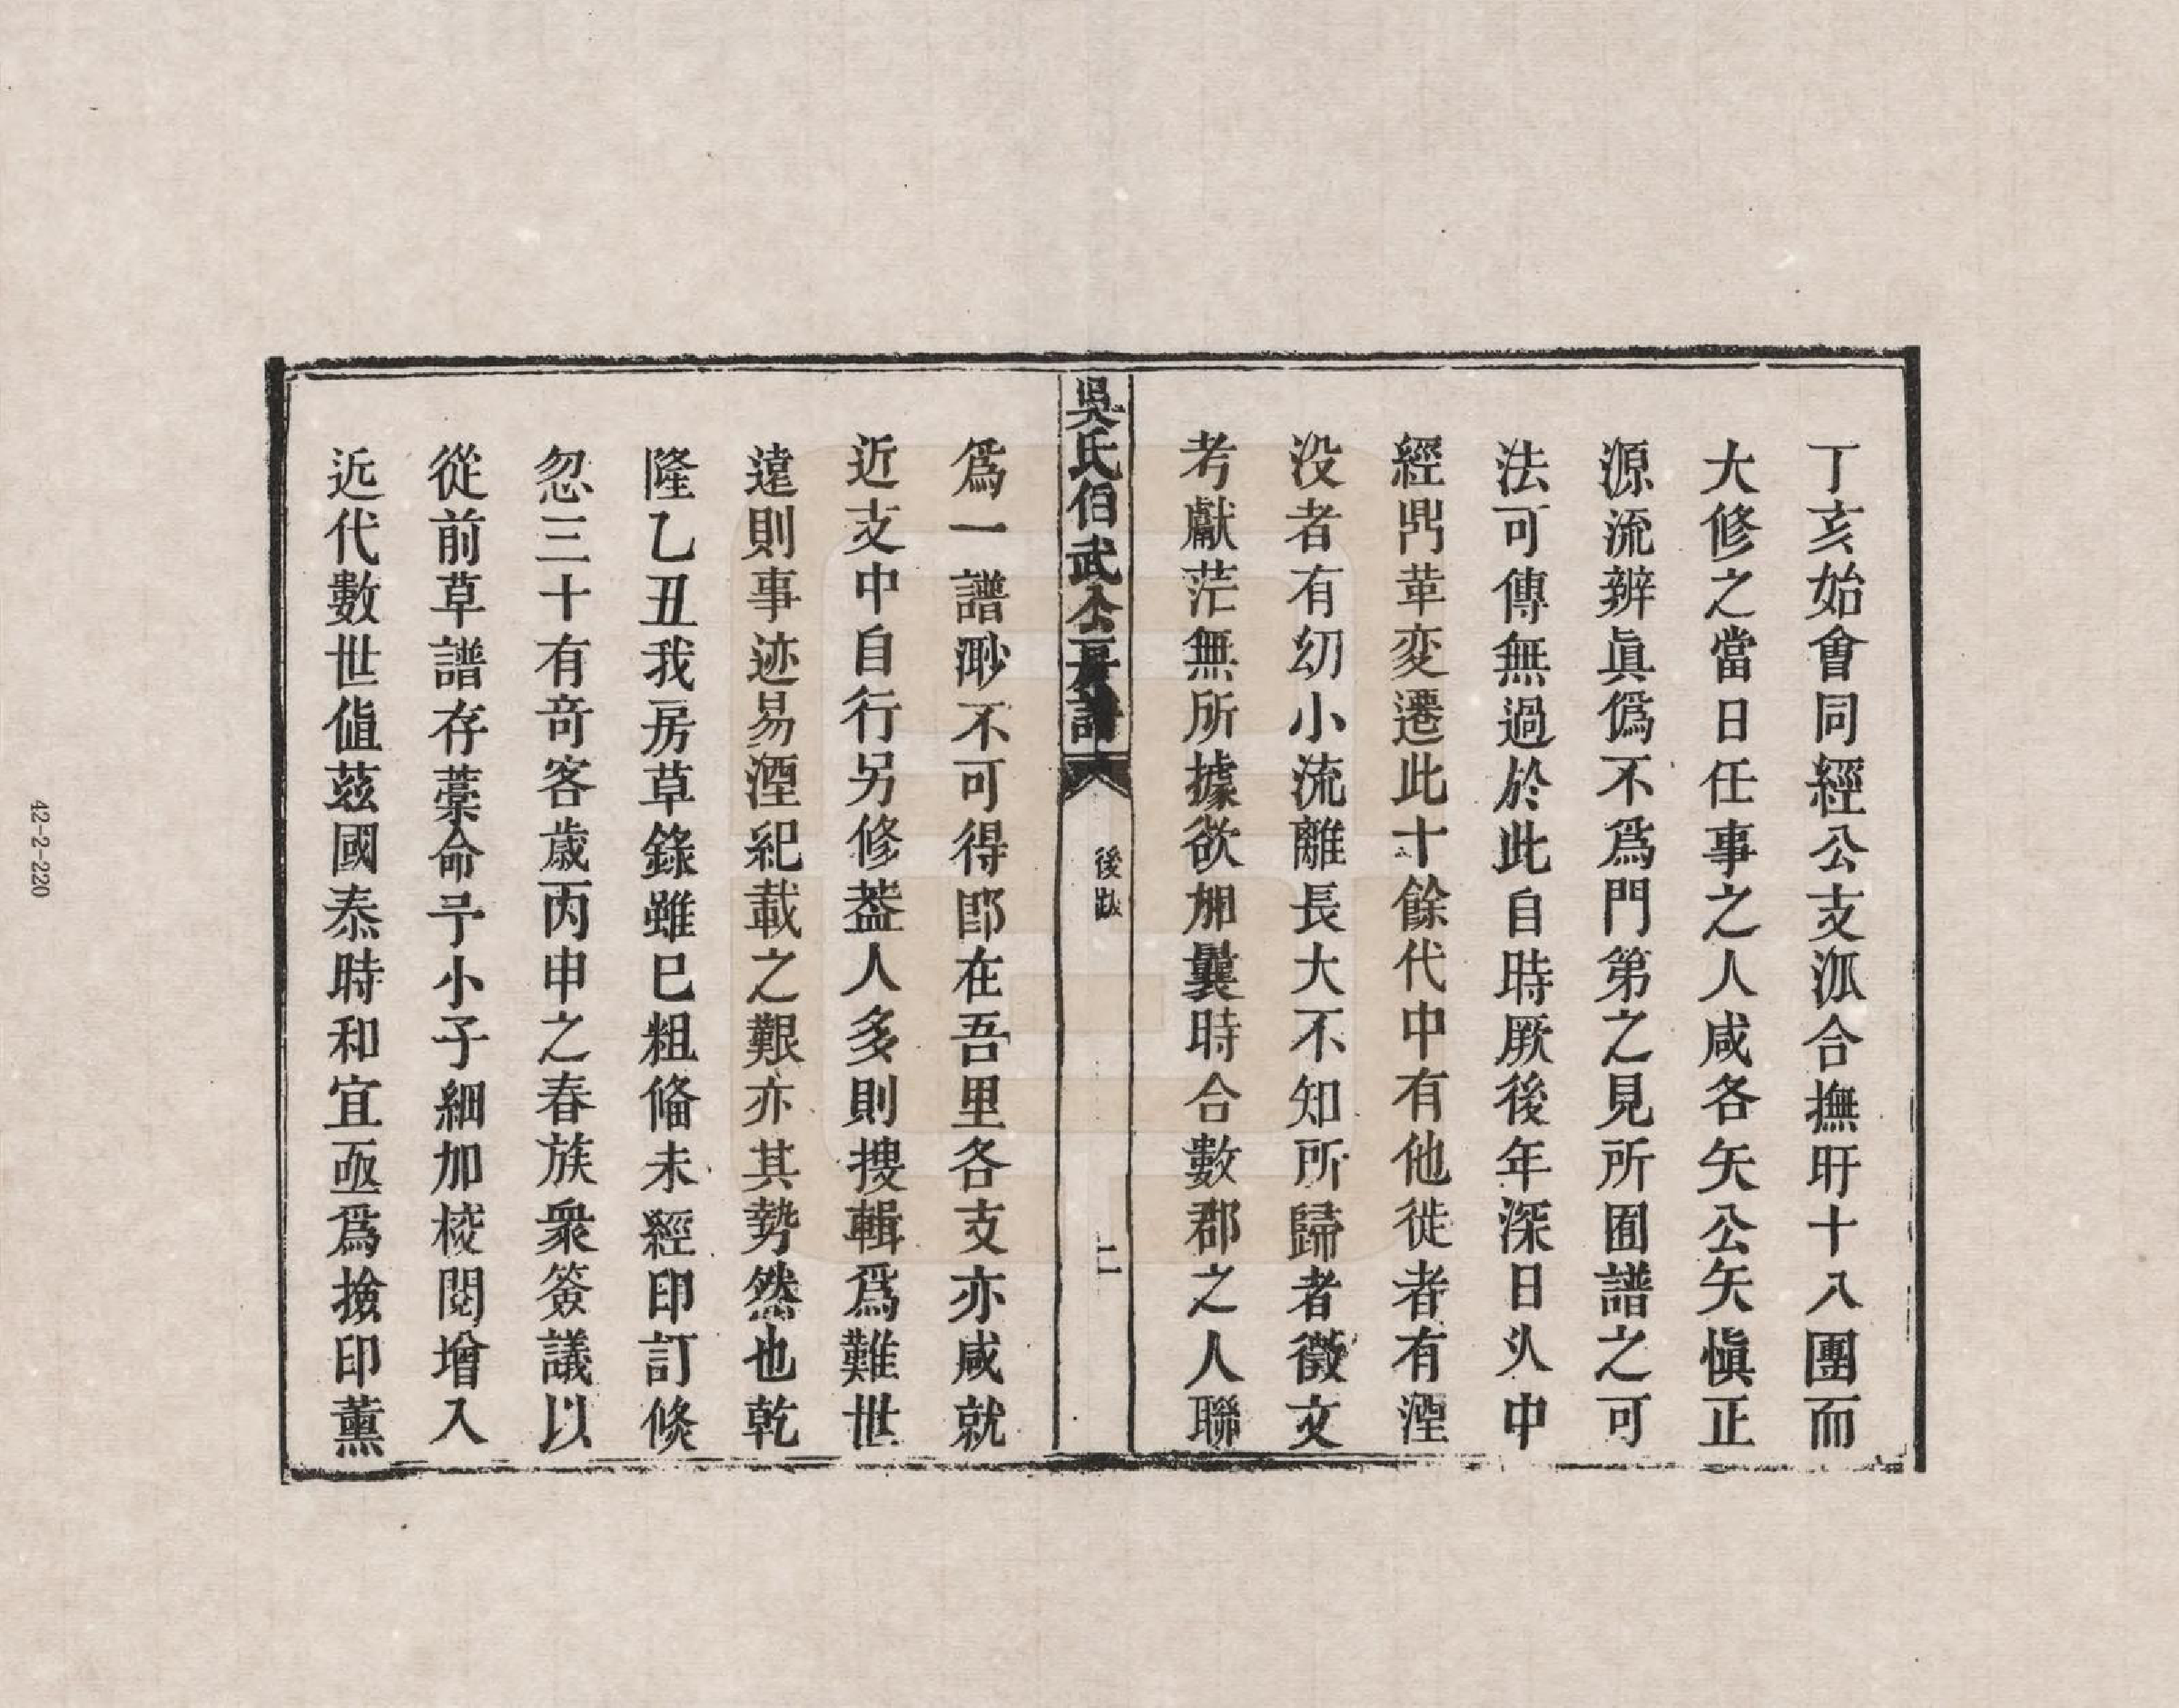 丁亥始會同經公支泒合撫旴十八團而
大修之當日任事之人咸各矢公矢愼正
源流辨眞僞不爲門第之見所囿譜之可
法可傳無過於此自時厥後年深日乆中
經鼎革変遷此十餘代中有他徙者有湮
没者有幼小流離長大不知所歸者徵文
考獻茫無所據欲如曩時合數郡之人聯
吳氏伯武公房譜
後跋
二
爲一譜渺不可得卽在吾里各支亦咸就
近支中自行另修葢人多則搜輯爲難世
遠則事迹易湮紀載之艱亦其勢然也乾
隆乙丑我房草錄雖巳粗俻未經印訂倐
忽三十有竒客歲丙申之春族衆簽議以
從前草譜存藁命予小子細加校閲增入
近代數世值茲國泰時和宜亟爲撿印薰
42-2-220